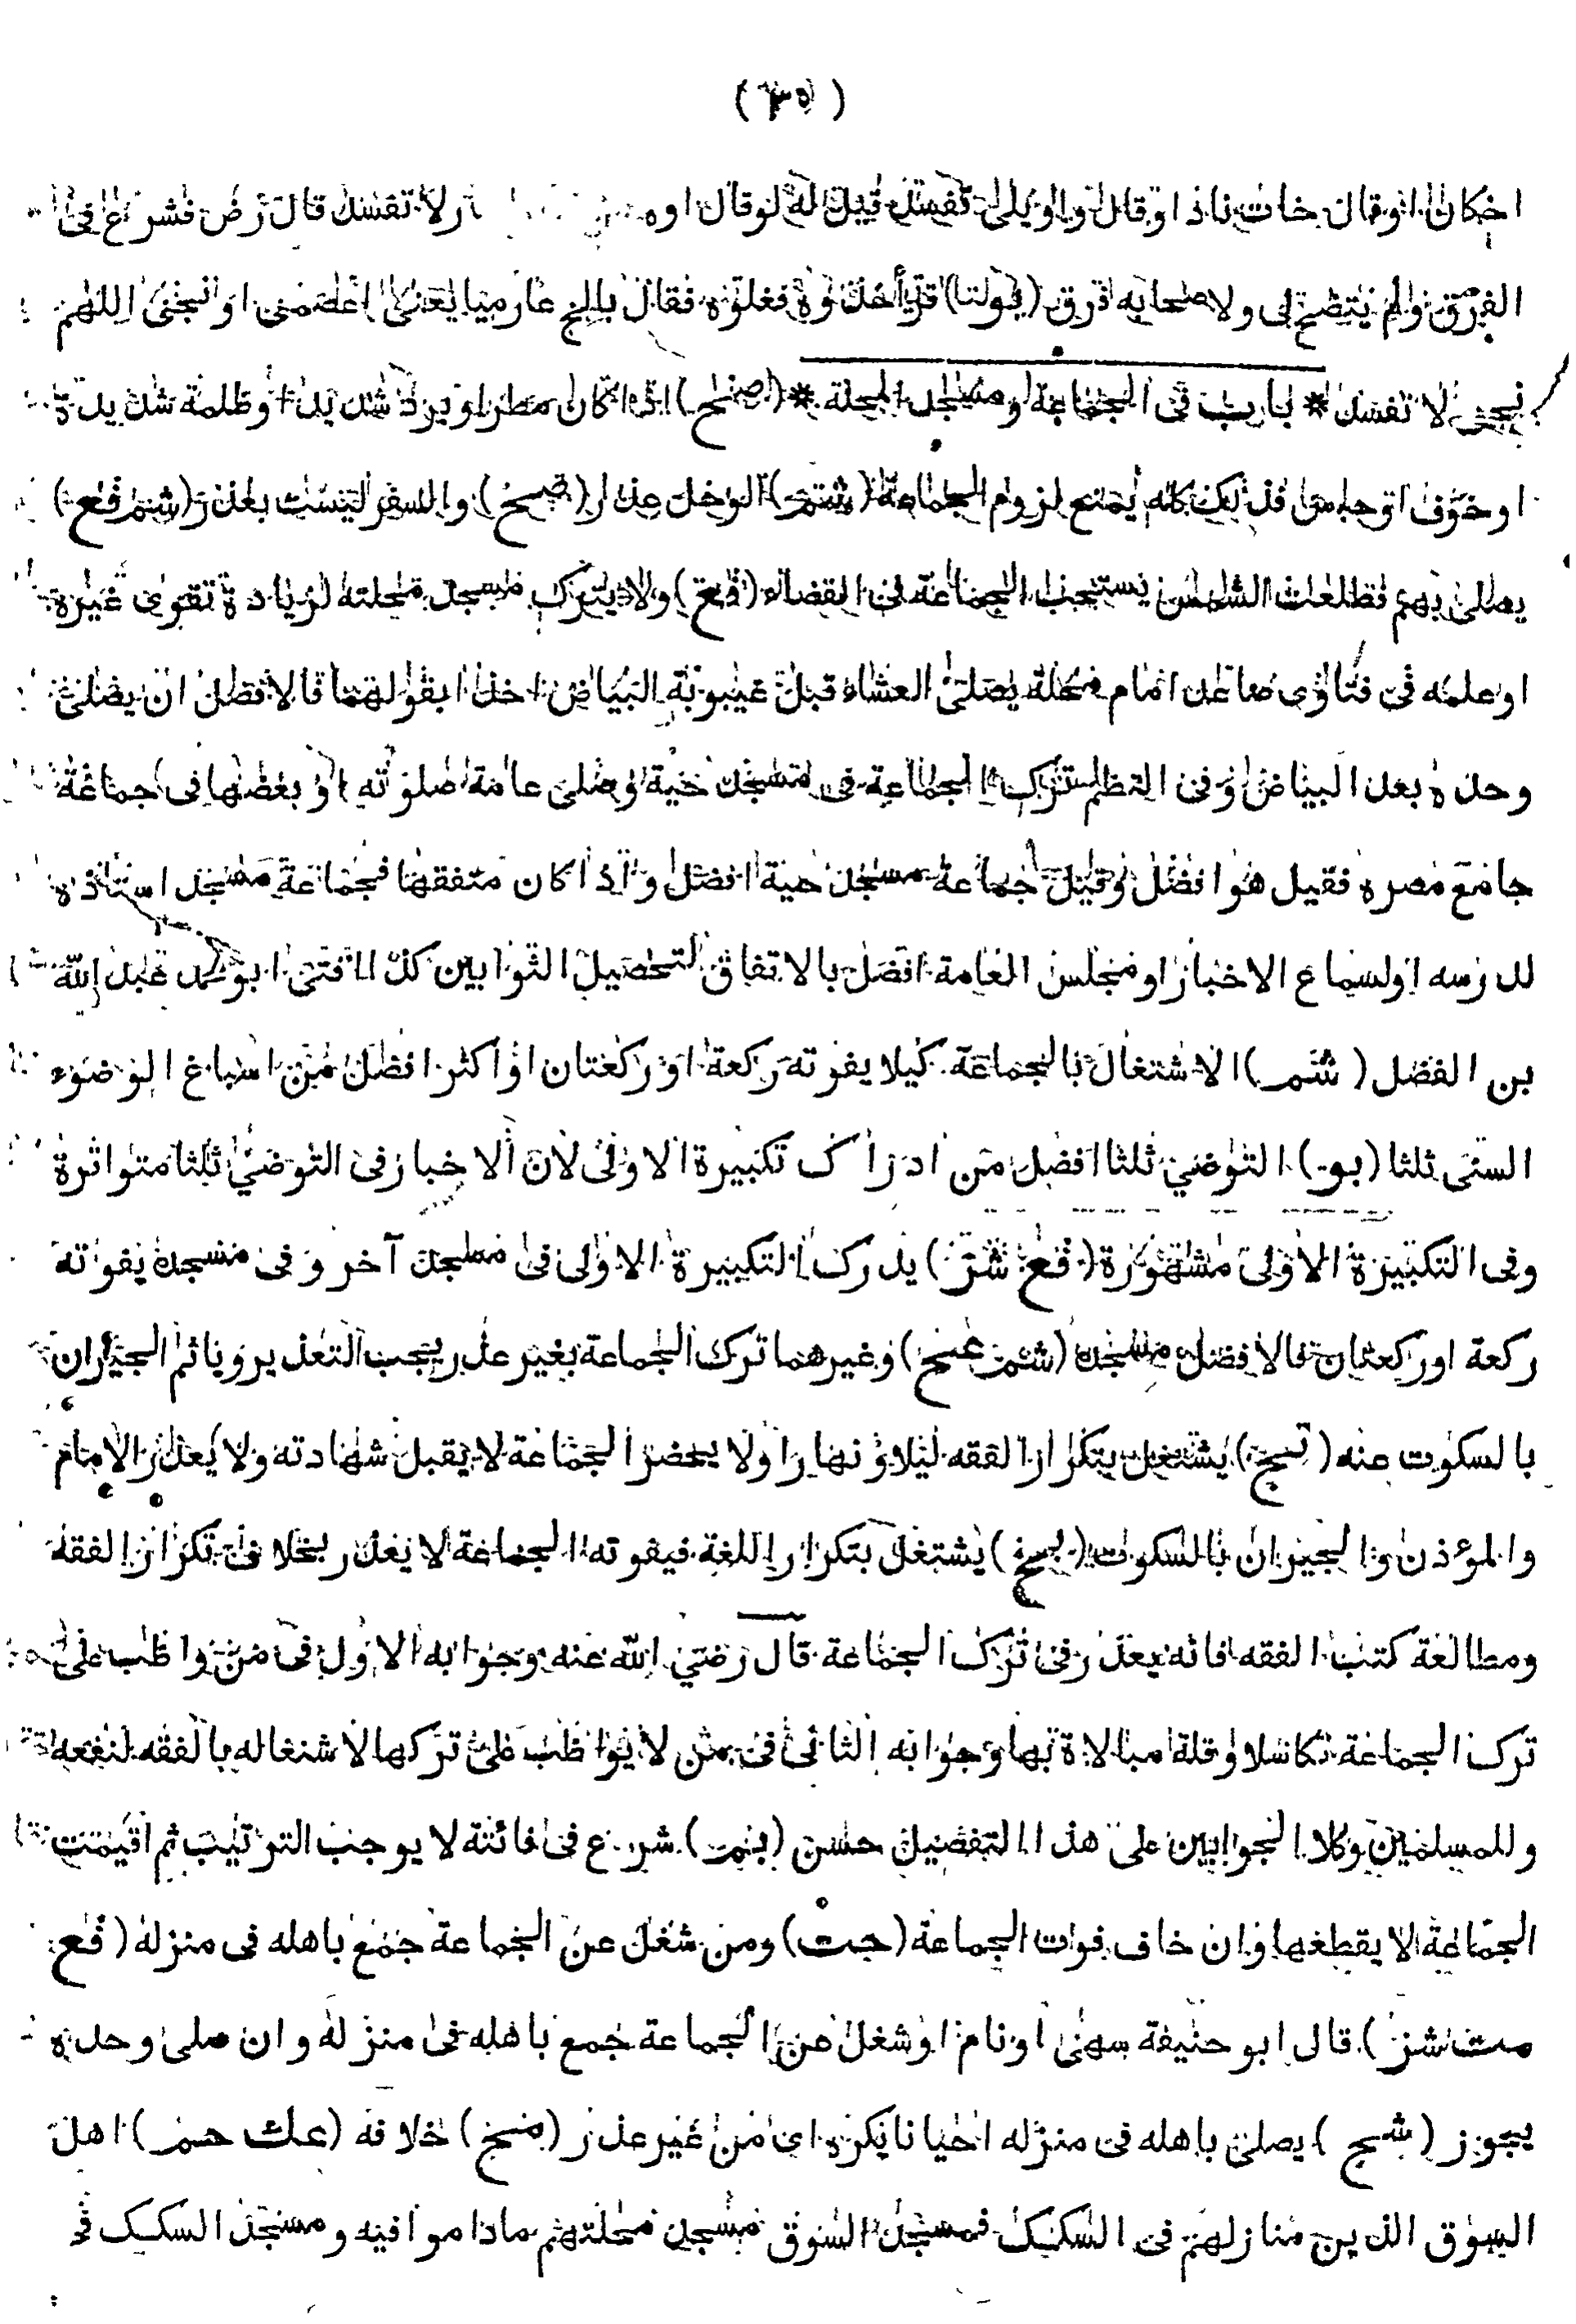 ( ٣٥ )
او قال او قال واويلى تفسد قيل له لو قال اوه لا تفسد قال رض فشرع فى
الفرق ولم يتضح لى ولاصحابه فرق فقال
لا تفسد * باب فى الجماعة ومسجد المحلة * (صح) اذا كان مطر او برد شديد او ظلمة شديدة
او خوف او حبس فذلك كله يمنع لزوم الجماعة (شم) الوحل عذر (صح) والسفر ليست بعذر (شم قع)
يصلى بهم فطلعت الشمس يستحب الجماعة فى القضاء (قع) ولا يترك مسجد محلته لزيادة تقوى غيره
او علمه فى فتاوى صاعد امام محلة يصلى العشاء قبل غيبوبة البياض اخذا بقولهما فالافضل ان يصلى
وحده بعد البياض وفى النظم ترك الجماعة فى مسجد حيه وصلى عامة صلوته او بعضها فى جماعة
جامع مصره فقيل هو افضل وقيل جماعة مسجد حيه افضل واذا كان متفقها فجماعة مسجد استاذه
لدرسه او لسماع الاخبار او مجلس العامة افضل بالاتفاق لتحصيل الثوابين كذا افتى ابو محمد عبد الله
بن الفضل (شم) الاشتغال بالجماعة كيلا يفوته ركعة او ركعتان او اكثر افضل من اسباغ الوضوء
الستى ثلثا (بو) التوضي ثلثا افضل من ادراك تكبيرة الاولى لان الاخبار فى التوضي ثلثا متواترة
وفى التكبيرة الاولى مشهورة (قع شز) يدرك التكبيرة الاولى فى مسجد آخر وفى مسجده يفوته
ركعة او ركعتان فالافضل مسجده (شم صح) وغيرهما ترك الجماعة بغير عذر يجب التعذير ويأثم الجيران
بالسكوت عنه (نج) يشتغل بتكرار الفقه ليلا ونهارا ولا يحضر الجماعة لا يقبل شهادته ولا يعذر الامام
والمؤذن والجيران بالسكوت (بج) يشتغل بتكرار اللغة فيفوته الجماعة لا يعذر بخلاف تكرار الفقه
ومطالعة كتب الفقه فانه يعذر فى ترك الجماعة قال رضي الله عنه وجوابه الاول فى من واظب على
ترك الجماعة تكاسلا وقلة مبالاة بها وجوابه الثانى فى من لا يواظب على تركها لاشتغاله بالفقه لنفعه
وللمسلمين وكلا الجوابين على هذا التفصيل حسن (بم) شرع فى فائتة لا يوجب الترتيب ثم اقيمت
الجماعة لا يقطعها وان خاف فوات الجماعة (جت) ومن شغل عن الجماعة جمع باهله فى منزله (قع
مت شز) قال ابو حنيفة سهى او نام او شغل عن الجماعة جمع باهله فى منزله وان صلى وحده
يجوز (شج) يصلى باهله فى منزله احيانا يكره اى من غير عذر (منح) خلافه (عك حم) اهل
السوق الذين منازلهم فى السكك فمسجد السوق مسجد محلتهم ماداموا فيه ومسجد السكك فى